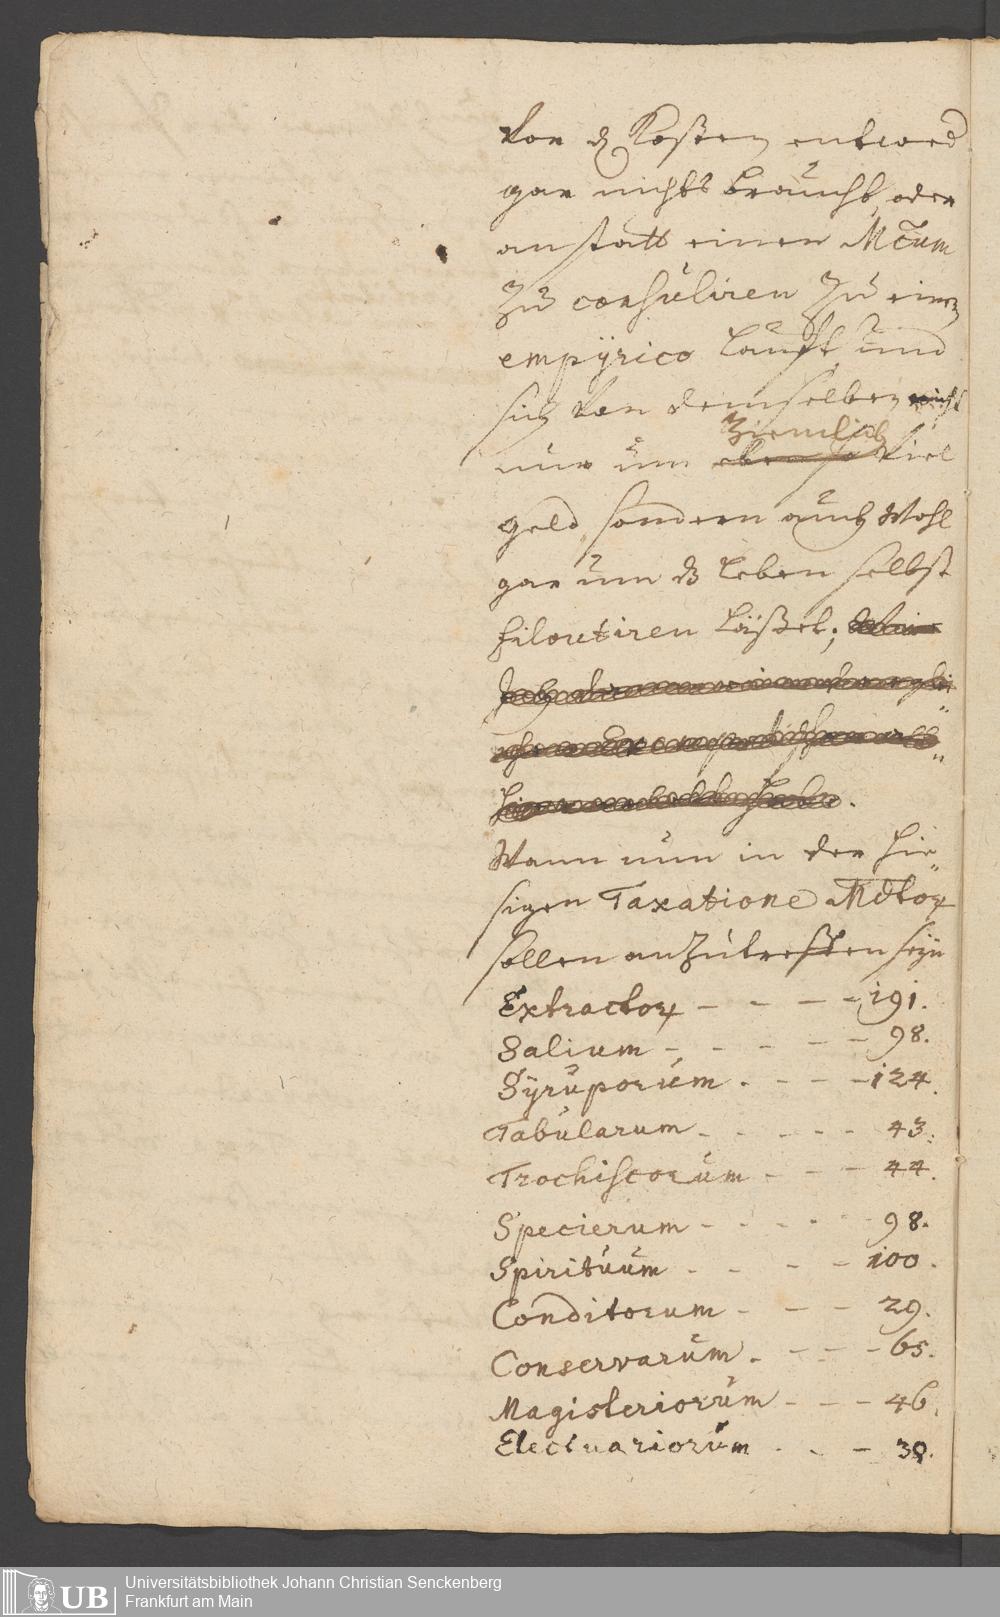 Vor d Kosten entwed
gar nichts braucht, oder
anstatt einen Mcum
Zu consuliren Zu einem
empÿrico laufft und
sich von demselben nicht
ziemlich
nur um eben so viel
geld, sondern auch wohl
gar um dz leben selbst
filoutiren läßet;
Wann nun in der hie„
sigen Taxatione Mdtor
sollen anzutreffen seÿn
Extractor - - - - 191.
Salium - - - - - 98.
Sÿruporum - - - - 124.
Tabularum - - - - - 43.
Trochiscorum - - - 44.
Specierum - - - - - 98.
Spirituum - - - - 100.
Conditorum - - - 29.
Conservarum - - - - 65.
Magisteriorum - - - 46.
Electuariorum - - - 39.
UB
Universitätsbibliothek Johann Christian Senckenberg
Frankfurt am Main